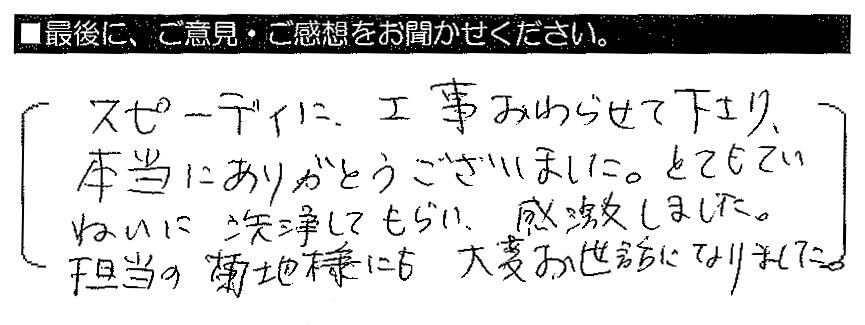 ■最後に、ご意見・ご感想をお聞かせください。
スピーディに、工事おわらせて下さり、
本当にありがとうございました。とてもてい
ねいに洗浄してもらい、感激しました。
担当の菊地様にも 大変お世話になりました。